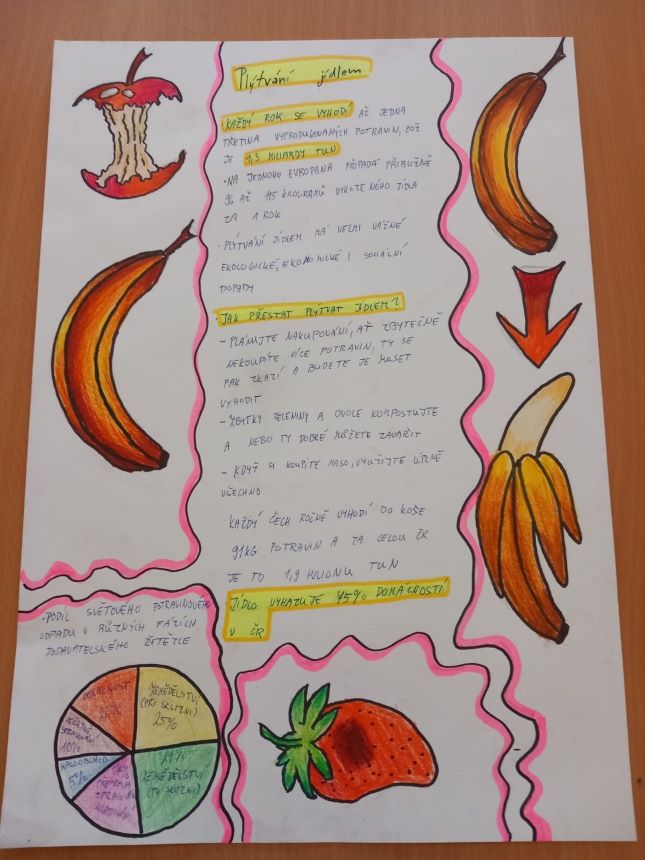 Plýtvání jídlem
· KAŽDÝ ROK SE VYHODÍ AŽ JEDNA
TŘETINA VYPRODUKOVANÝCH POTRAVIN, COŽ
JE 1,3 MILIARDY TUN
· NA JEDNOHO EVROPANA PŘIPADÁ PŘIBLIŽNĚ
96 AŽ 115 KILOGRAMŮ VYHOZENÉHO JÍDLA
ZA 1 ROK
· PLÝTVÁNÍ JÍDLEM MÁ VELMI VÁŽNÉ
EKOLOGICKÉ, EKONOMICKÉ I SOCIÁLNÍ
DOPADY
· JAK PŘESTAT PLÝTVAT JÍDLEM?
- PLÁNUJTE NAKUPOVÁNÍ, AŤ ZBYTEČNĚ
NEKOUPÍTE VÍCE POTRAVIN, TY SE
PAK ZKAZÍ A BUDETE JE MUSET
VYHODIT
- ZBYTKY ZELENINY A OVOCE KOMPOSTUJTE
A NEBO TY DOBRÉ MŮŽETE ZAVAŘIT
- KDYŽ SI KOUPÍTE MASO, VYUŽIJTE ÚPLNĚ
VŠECHNO
· KAŽDÝ ČECH ROČNĚ VYHODÍ DO KOŠE
91KG POTRAVIN A ZA CELOU ČR
JE TO 1,9 MILIONU TUN
· JÍDLO VYHAZUJE 95% DOMÁCNOSTÍ
V ČR
· PODÍL SVĚTOVÉHO POTRAVINOVÉHO
ODPADU V RŮZNÝCH FÁZÍCH
DODAVATELSKÉHO ŘETĚZCE
DOMÁCNOST
ZEMĚDĚLSTVÍ
(PŘI SKLIZNI)
25%
VEŘEJNÉ
STRAVOVÁNÍ
10%
MALOOBCHOD
5%
PŘEPRAVA
ZPRACOVÁNÍ
ZEMĚDĚLSTVÍ
(PO SKLIZNI)